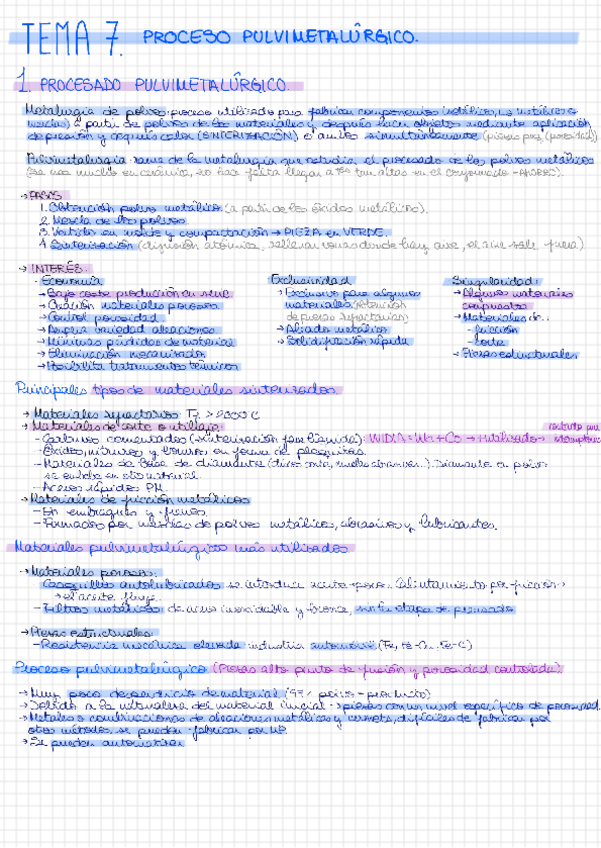 TEMA 7. PROCESO PULVIMETALÚRGICO.
1. PROCESADO PULVIMETALÚRGICO.
Metalurgia de polvos: proceso utilizado para fabricar componentes (metálicos, no metálicos o
mezclas) a partir de polvos de los materiales y después hacer objetos mediante aplicación
de presión y después calor (SINTERIZACIÓN) o ambos simultáneamente
Pulvimetalurgia: rama de la metalurgia que estudia el procesado de los polvos metálicos
(se usa mucho en cerámica, no hace falta llegar a tan altas en el
→ FASES
1. Obtención polvo metálico (a partir de los óxidos metálicos).
2. Mezcla de los polvos
3. Vertido en molde y compactación → PIEZA en VERDE.
4. Sinterización (difusión atómica, rellenar donde hay aire, el aire sale fuera)
→ INTERÉS:
- Economía
→ Bajo coste producción en serie
→ Creación materiales porosos
→ Control porosidad
→ Amplia variedad aleaciones
→ Mínimas pérdidas de material
→ Eliminación mecanizado
→ Posibilita tratamientos térmicos
Exclusividad
→ Exclusivo para algunos
materiales (obtención
de piezas refractarias)
→ Aleado metálico
→ Solidificación rápida
Singularidad:
→ Algunos materiales
compuestos
→ Materiales de:
- fricción
- corte
→ Piezas estructurales
Principales tipos de materiales sinterizados.
→ Materiales refractarios Tf > 2000 C
→ Materiales de corte o utillaje:
- Carburos cementados (sinterización fase líquida): WIDIA = + Co → + utilizado →
- Óxidos, nitruros y boruros en forma de plaquitas.
- Materiales de base de diamante Diamante en polvo
se embebe en otro material.
- Aceros rápidos PM.
→ Materiales de fricción metálicos
- En embragues y frenos.
- Formados por mezclas de polvos metálicos, abrasivos y lubricantes.
Materiales pulvimetalúrgico más utilizados
→ Materiales porosos:
- Casquillos autolubricados se introduce aceite Calentamiento por fricción →
→ el aceite fluye.
- Filtros metálicos de acero inoxidable y bronce, sin etapa de prensado
→ Piezas estructurales
- Resistencia mecánica elevada industria automóvil (Fe, Fe-Cu, Fe-C)
Proceso pulvimetalúrgico (Piezas alto punto de fusión y porosidad controlada).
→ Muy poco desperdicio de material (97% polvo - producto)
→ Debido a la naturaleza del material inicial → piezas con un nivel específico de porosidad.
→ Metales o combinaciones de aleaciones metálicas y cermets, difíciles de fabricar por
otros métodos, se pueden fabricar por MP.
→ Se pueden automatizar